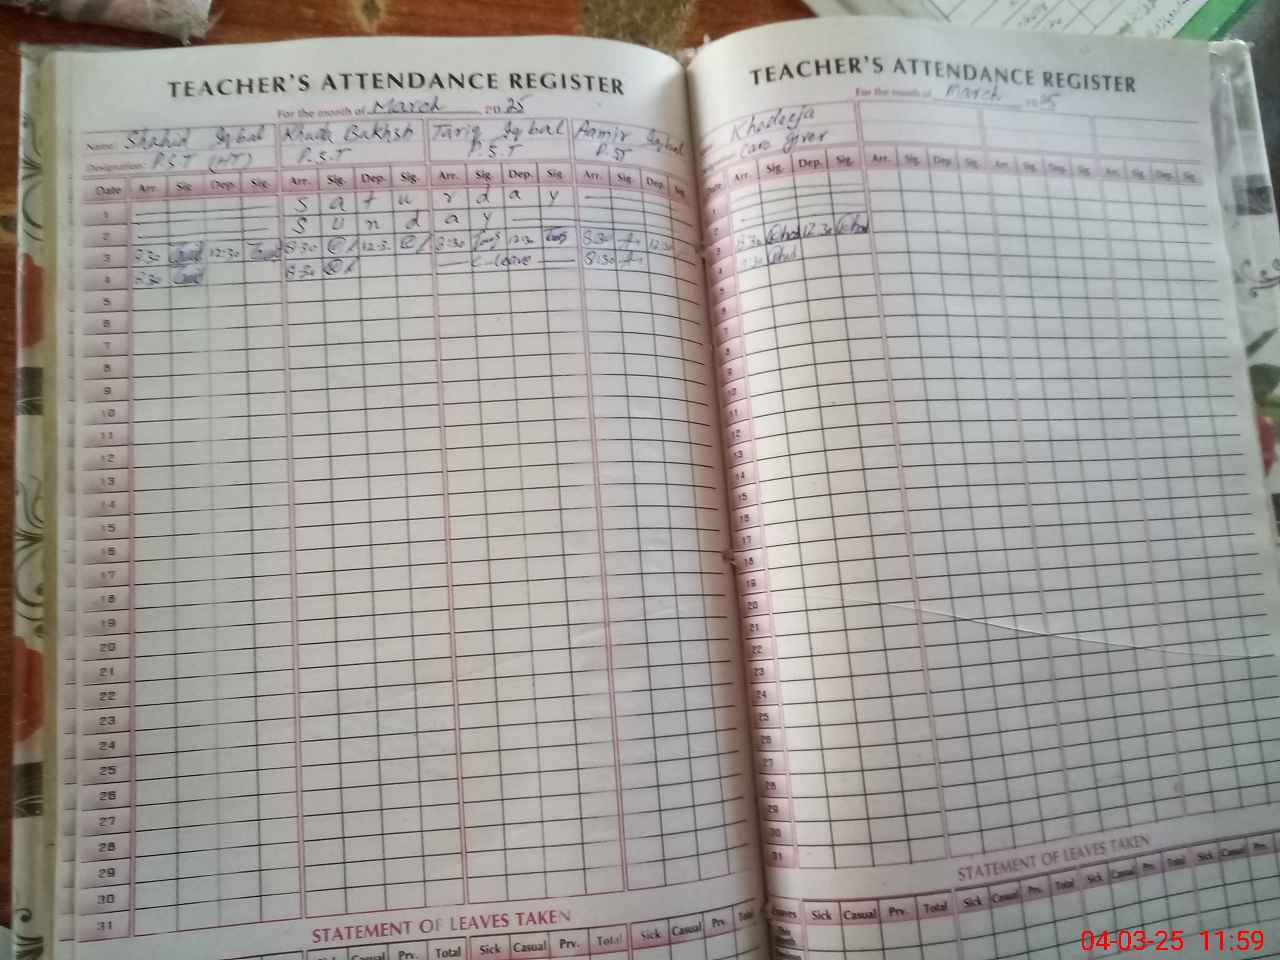 TEACHER'S ATTENDANCE REGISTER
For the month of March 2025
Name: Shahid Iqbal Khuda Bakhsh Tariq Iqbal Aamir Iqbal
Designation: P.S.T (HT) P.S.T P.S.T P.ST
Date Arr. Sig. Dep. Sig. Arr. Sig. Dep. Sig. Arr. Sig. Dep. Sig. Arr. Sig. Dep. Sig.
1 S a t u r d a y
2 S u n d a y
3 8:30 12:30 8:30 12:3. 8:30 12:30 8:30 12:
4 8:30 8:30 C-leave 8:30
5
6
7
8
9
10
11
12
13
14
15
16
17
18
19
20
21
22
23
24
25
26
27
28
29
30
31
STATEMENT OF LEAVES TAKEN
Casual Prv. Total Sick Casual Prv. Total Sick Casual Prv. Total
TEACHER'S ATTENDANCE REGISTER
For the month of March 2025
Khadeeja
care giver
Date Arr. Sig. Dep. Sig. Arr. Sig. Dep. Sig. Arr. Sig. Dep. Sig. Arr. Sig. Dep. Sig.
1
2
3 8:30 12:30
4 8:30
5
6
7
8
9
10
11
12
13
14
15
16
17
18
19
20
21
22
23
24
25
26
27
28
29
30
31
STATEMENT OF LEAVES TAKEN
Leaves Sick Casual Prv. Total Sick Casual Prv. Total Sick Casual Prv. Total Sick Casual Prv.
This
04-03-25 11:59